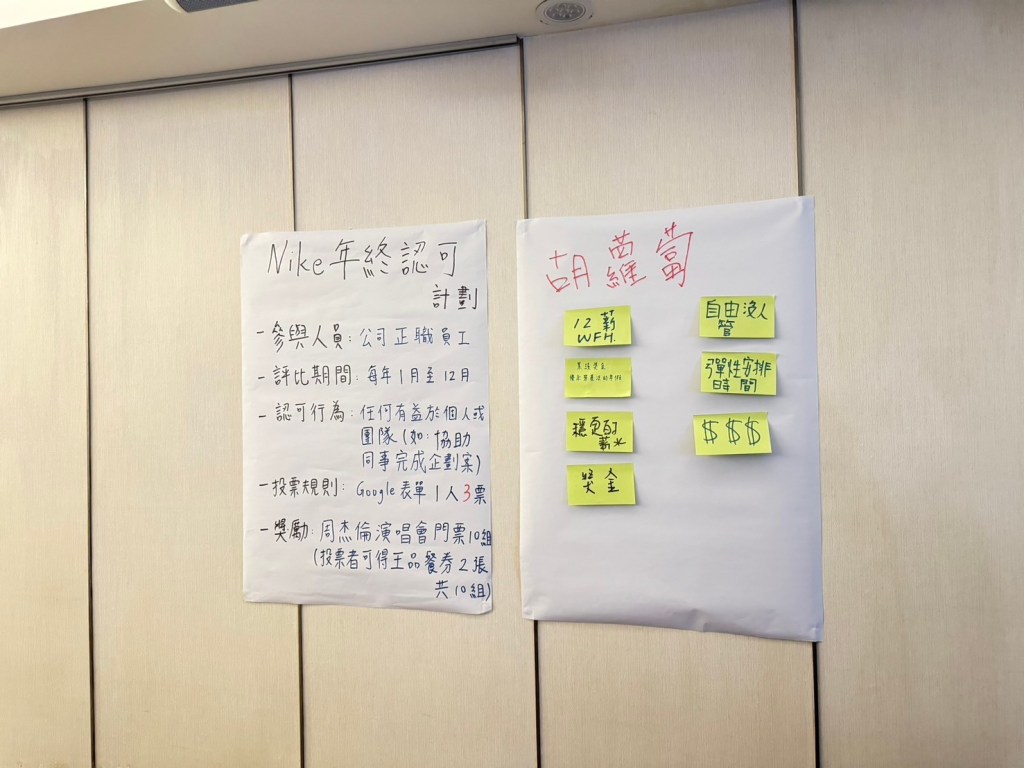 Nike年終認可
計劃
- 參與人員：公司正職員工
- 評比期間：每年1月至12月
- 認可行為：任何有益於個人或
團隊（如：協助
同事完成企劃案）
- 投票規則：Google表單 1人3票
- 獎勵：周杰倫演唱會門票10組
（投票者可得王品餐券2張
共10組）
胡蘿蔔
12薪
WFH.
穩定的
薪水
獎金
自由沒人
管
彈性安排
時間
$$$